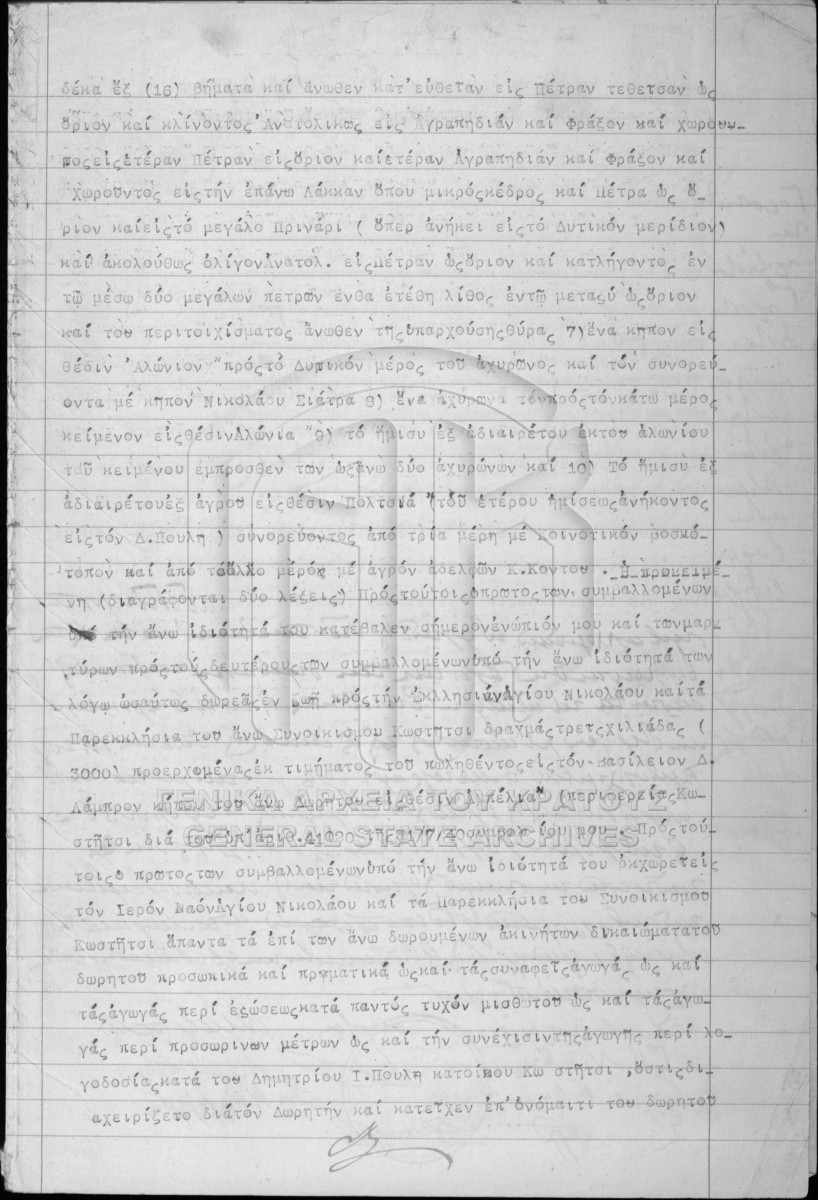 δέκα ἕξ (16) βήματα καί ἄνωθεν κατ'εὐθεῖαν εἰς Πέτραν τεθεῖσαν ὡς
ὅριον καί κλίνοντος Ἀνατολικῶς εἰς Ἀγραπηδιάν καί Φράξον καί χωρουν-
τος εἰς ἑτέραν Πέτραν εἰς ὅριον καί ἑτέραν Ἀγραπηδιάν καί Φράξον καί
Χωροῦντος εἰς τήν ἐπάνω Λάκκαν ὅπου μικρός κέδρος καί Πέτρα ὡς ὅ-
ριον καί εἰς τό μεγάλο Πρινάρι ( ὅπερ ἀνήκει εἰς τό Δυτικόν μερίδιον)
καί ἀκολούθως ὀλίγον Ἀνατολ. εἰς Πέτραν ὡς ὅριον καί κατλήγοντος ἐν
τῷ μέσω δύο μεγάλων πετρῶν ἔνθα ἐτέθη λίθος ἐν τῷ μεταξύ ὡς ὅριον
καί του περιτοιχίσματος ἄνωθεν τῆς ὑπαρχούσης θύρας 7) ἕνα κῆπον εἰς
θέσιν "Ἀλώνιον" πρός τό Δυτικόν μέρος τοῦ ἀχυρῶνος καί τῶν συνορεύ-
οντα μέ κῆπον Νικολάου Σιάτρα 8) ἕνα ἀχυρῶνα τόν πρός τόν κάτω μέρος
κείμενον εἰς θέσιν Ἀλώνια "9) τό ἥμισυ ἐξ ἀδιαιρέτου ἐκ του ἁλωνίου
τοῦ κειμένου ἔμπροσθεν τῶν ὡς ἄνω δύο ἀχυρώνων καί 10) Τό ἥμισυ ἐξ
ἀδιαιρέτου ἐξ ἀγροῦ εἰς θέσιν Πολτσιά "(τοῦ ἑτέρου ἡμίσεως ἀνήκοντος
εἰς τόν Δ.Πουλῆ ) συνορεύοντος ἀπό τρία μέρη μέ κοινοτικόν βοσκό-
τοπον καί ἀπό τό ἄλλο μέρος μέ ἀγρόν ἀδελφῶν Κ.Κοντου . Ἡ προκειμέ-
νη (διαγράφονται δύο λέξεις) Πρός τούτοις ο πρῶτος των συμβαλλομένων
ὑπό τήν ἄνω ἰδιότητά του κατέβαλεν σήμερον ἐνώπιόν μου καί των μαρ-
τύρων πρός τούς δευτέρους των συμβαλλομένων ὑπό τήν ἄνω ἰδιότητά των
λόγῳ ὡσαύτως δωρεᾶς ἐν ζωῇ πρός τήν Ἐκλλησίαν Ἁγίου Νικολάου καί τά
Παρεκκλήσια του ἄνω Συνοικισμου Κωστῆτσι δραχμάς τρεῖς χιλιάδας (
3000) προερχομένας ἐκ τιμήματος τοῦ πωληθέντος εἰς τόν Βασίλειον Δ.
Λάμπρον κήπου του ἄνω Δωρητου εἰς θέσιν Ἀμπέλια" (περιφερείας Κω-
στῆτσι διά του ὑπ'ἀριθ. συμβολαίου μου . Πρός τού-
τοις ο πρῶτος των συμβαλλομένων ὑπό τήν ἄνω ἰδιότητά του ἐκχωρεῖ εἰς
τόν Ἱερόν Ναόν Ἁγίου Νικολάου καί τά Παρεκκλήσια του Συνοικισμοῦ
Κωστῆτσι ἅπαντα τά ἐπί των ἄνω δωρουμένων ἀκινήτων δικαιώματα τοῦ
δωρητου προσωπικά καί πργματικά ὡς καί τάς συναφεῖς ἀγωγάς ὡς καί
τάς ἀγωγάς περί ἐξώσεως κατά παντός τυχόν μισθωτοῦ ὡς καί τάς ἀγω-
γάς περί προσωρινων μέτρων ὡς καί τήν συνέχισιν τῆς ἀγωγῆς περί λο-
γοδοσίας κατά του Δημητρίου Ι.Πουλῆ κατοίκου Κω στῆτσι ,ὅστις δι-
αχειρίζετο διά τόν Δωρητήν καί κατεῖχεν ἐπ'ὀνόμαιτι του δωρητοῦ
ΓΕΝΙΚΑ ΑΡΧΕΙΑ ΤΟΥ ΚΡΑΤΟΥΣ
GENERAL STATE ARCHIVES